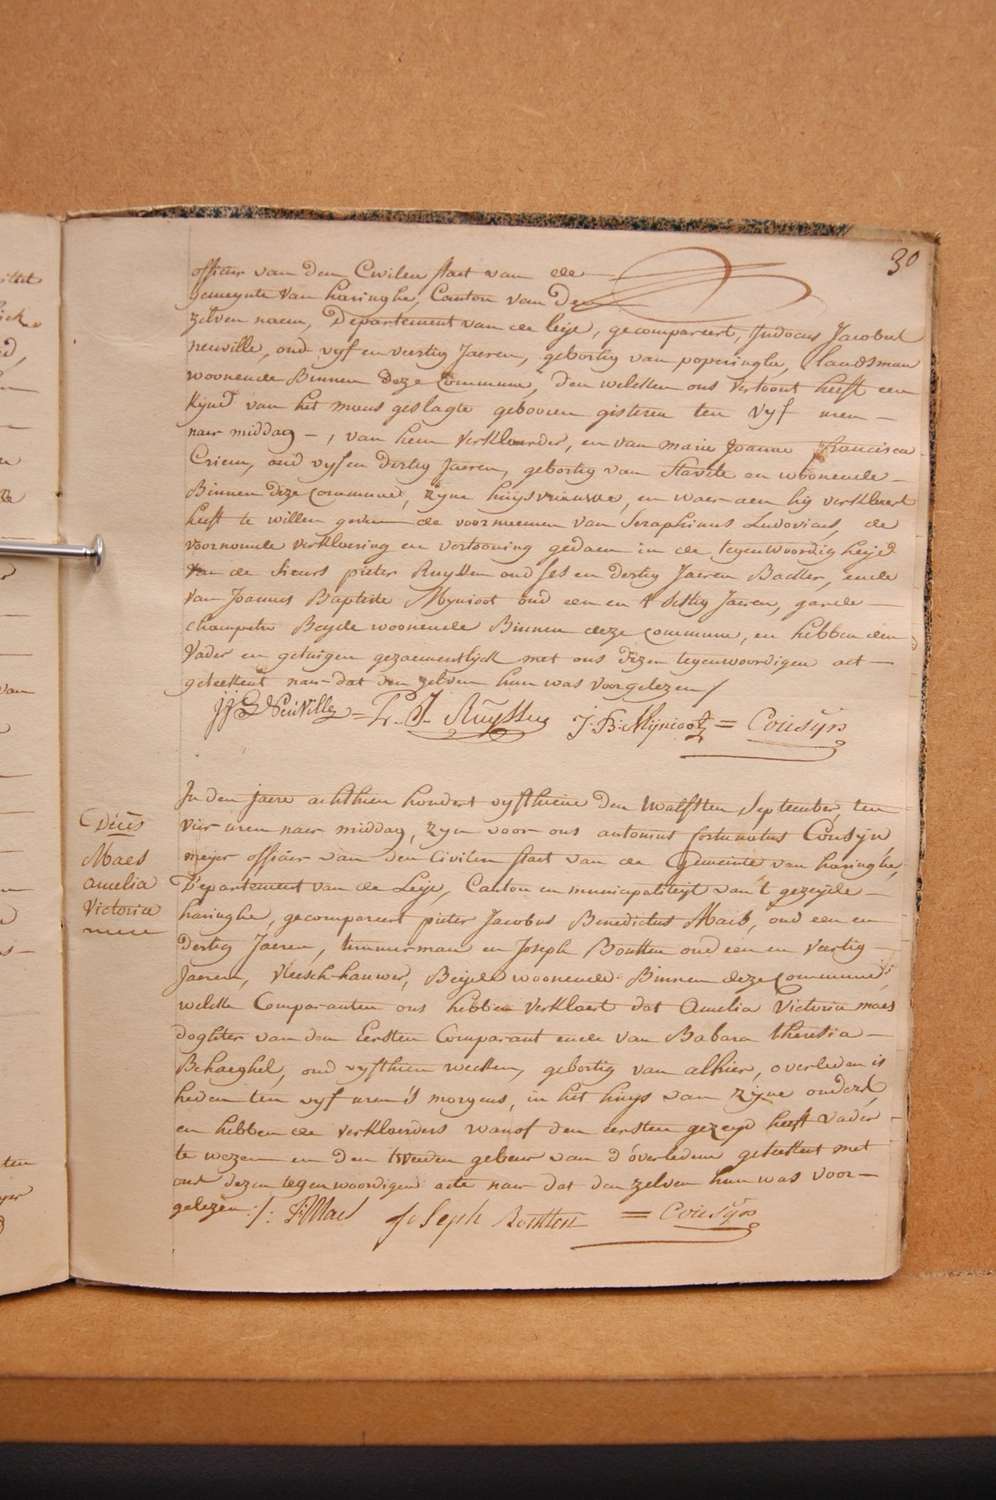 30
officier van den Civilen staet van de
Gemeynte van haringhe, Canton van De
zelven naem, Departement van de leije, gecompareert, Judocus Jacobus
neuville, oud vyf en veertig Jaeren, gebortig van poperinghe, landsman
woonende Binnen deze Commune, den welcken ons vertoont heeft een
Kynd van het mans geslagte gebooren gisteren ten vyf uren
naer middag, van hem verklaerder, en van marie Joanne francisca
Criem, oud vyf en dertig Jaeren, gebortig van Stavele en woonende
Binnen deze Commune, zijne huijsvrauwe, en waer aen hij verklaert
heeft te willen geven de voornaemen van Seraphinus Ludovicus, de
voornomde verklaering en vertooning gedaen in de tegenwoordigheijd
van de Sieurs pieter Ruyssen oud ses en dertig Jaeren Backer, ende
van Joannes Baptiste Mynioot oud een en dertig Jaeren, garde
champetre Beyde woonende Binnen deze Commune, en hebben den
vader en getuigen gezaementlijck met ons dezen tegenwoordigen act
geteekent naer dat den zelven hun was voorgelezen /
JJ Neuville = P. J. Ruyssen J. B. Mynioot = Cousijn
Décès
Maes
amelia
Victorine
In den jaere achthien hondert vyfthiene den twalfsten September, ten
vier uren naer middag, zyn voor ons antonius fortunatus Cousijn
meijer officier van den Civilen staet van de Gemeente van haringhe,
Departement van de Leije, Canton en municipaliteijt van 't gezeijde
haringhe, gecompareert pieter Jacobus Benedictus Maes, oud een en
dertig Jaeren, timmerman en Joseph Boutten oud een en veertig
Jaeren, vleesch-hauwer, Beijde woonende Binnen deze Commune,
welcke Comparanten ons hebben verklaert dat Amelia Victoria maes
doghter van den Eersten Comparant ende van Babara theresia
Behaeghel, oud vyfthien weeken, gebortig van alhier, overleden is
heden ten vyf uren 's morgens, in het huys van zijne ouders,
en hebben de verklaerders wanof den eersten gezeyd heeft vader
te wezen en den tweeden gebeur van d'overledene geteekent met
ons dezen tegenwoordigen acte naer dat den zelven hun was voor-
gelezen :/: P Maes Joseph Boutten = Cousijn